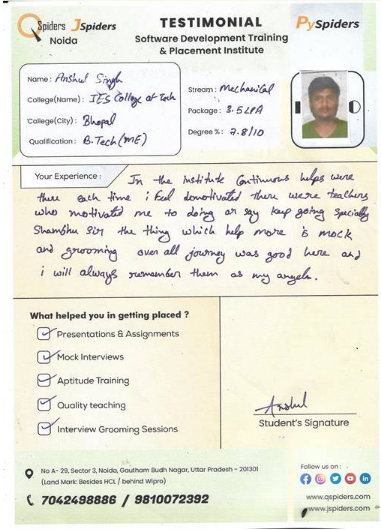 QSpiders JSpiders
Noida
TESTIMONIAL
Software Development Training
& Placement Institute
PySpiders
Name: Anshul Singh
College(Name): IES College of Tech
College(City): Bhopal
Qualification: B.Tech(ME)
Stream: Mechanical
Package: 3.5LPA
Degree %: 7.8/10
Your Experience:
In the institute Continuous helps were
there each time i feel demotivated there were teachers
who motivated me to doing or say keep going specially
Shambhu Sir the thing which help more is mock
and grooming over all journey was good here and
i will always remember them as my angels.
What helped you in getting placed ?
Presentations & Assignments
Mock Interviews
Aptitude Training
Quality teaching
Interview Grooming Sessions
Anshul
Student's Signature
No A- 29, Sector 3, Noida, Goutham Budh Nagar, Uttar Pradesh - 201301
(Land Mark: Besides HCL / behind Wipro)
7042498886 / 9810072392
Follow us on :
www.qspiders.com
www.jspiders.com